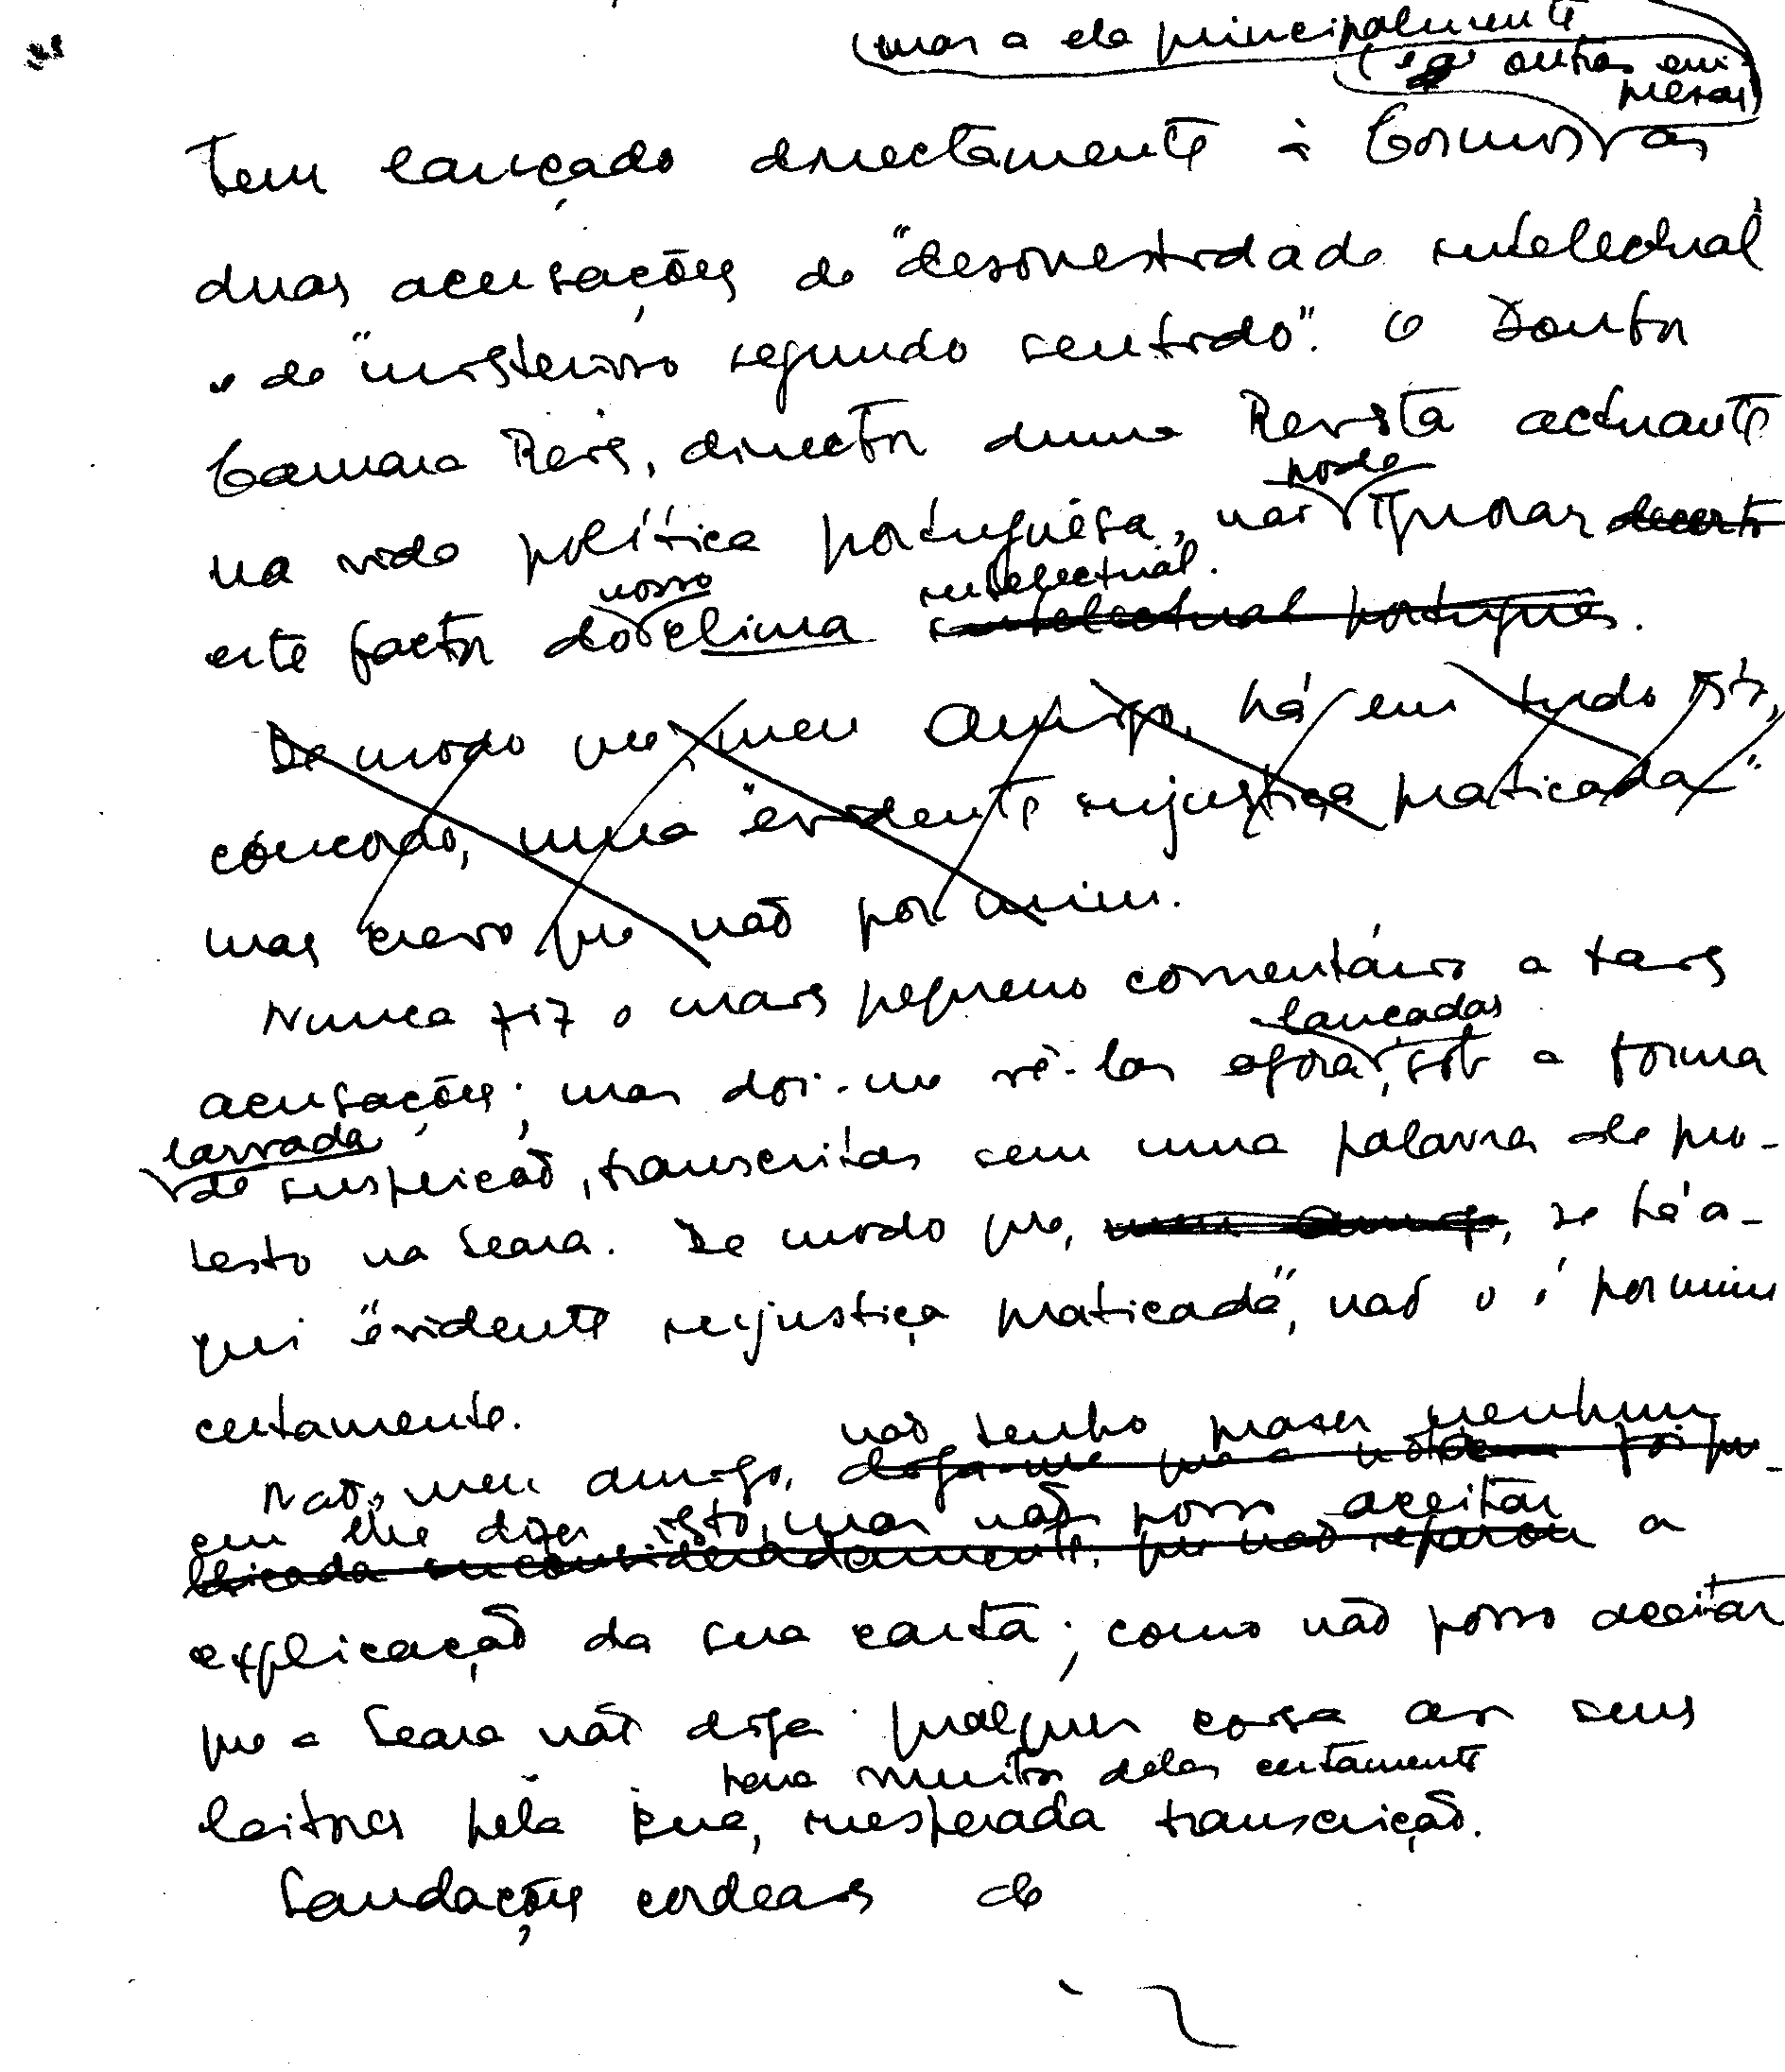 (mas a ela principalmente
(e a outras em-
presas)
tem lançado directamente à Cosmos as
duas acusações de "desonestidade intelectual"
e de "misterioso segundo sentido". O Doutor
Camara Reis, director duma Revista actuante
pode
na vida política portuguêsa, não ignorar decerto
nosso intelectual.
este factor do clima intelectual português.
De modo que meu Amigo, há em tudo isto,
concordo, uma "evidente injustiça praticada"
mas creio que não por mim.
Nunca fiz o mais pequeno comentário a tais
lançadas
acusações; mas doi-me vê-las agora, sob a forma
larvada
de suspeição, transcritas sem uma palavra de pro-
testo na Seara. De modo que, meu Amigo, se há a-
qui "evidente injustiça praticada", não o é por mim
certamente.
não tenho prazer nenhum
Não, meu amigo, diga-me que a notícia foi pu-
em lhe dizer isto, mas não posso aceitar
blicada inconsideradamente, que não reparou a
explicação da sua carta; como não posso aceitar
que a Seara não diga qualquer coisa aos seus
para muitos deles certamente
leitores pela sua, inesperada transcrição.
Saudações cordeais de